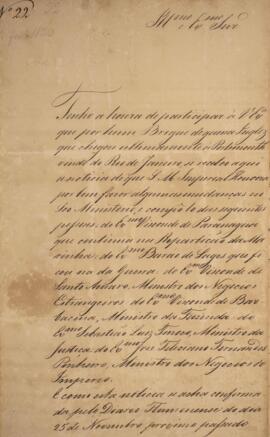 Nº 22
Illmo Exmo
e Snr
Tenho a honra de participar a V. Exa
que por hum Brigue de guerra Inglez
que chegou
vindo do Rio de Janeiro, se recebeo aqui
a noticia de que S. M. Imperial houvera
por bem fazer algumas mudanças no
Seo Ministerio, e compôlo das seguintes
pessoas. do Exmo Visconde de Paranaguá
que continua na Repartição da Ma-
rinha; do Exmo Barão de Lages que fi-
cou na da Guerra. do Exmo Visconde de
Santo Amaro, Ministro dos Negocios
Estrangeiros do Exmo Visconde de Bar-
bacena, Ministro da Fazenda do
Exmo Sebastião Luiz Tinoco, Ministro da
Justiça. do Exmo José Feliciano Fernandes
Pinheiro, Ministro dos Negocios do
Imperio.
E como esta noticia se acha confirma
da pelo Diario Fluminense do dia
25 de Novembro proximo passado